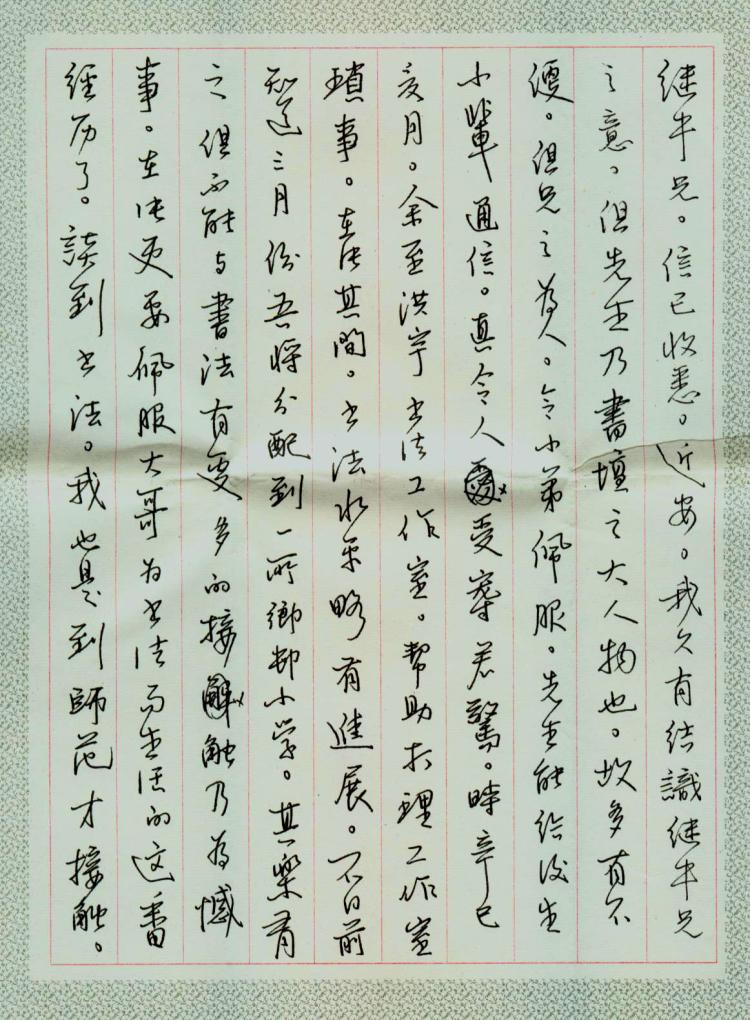 继平兄。信已收悉。近安。我久有结識继平兄
之意。但先生乃書壇之大人物也。故多有不
便。但兄之為人。令小弟佩服。先生能给後生
小輩通信。真令人受寵若驚。時辛巳
亥月。余至洪宇书法工作室。帮助打理工作室
瑣事。在此其間。书法水平略有進展。不日前
知道三月份吾将分配到一所鄉邨小学。其樂有
之但不能与書法有更多的接触乃為憾
事。在此更要佩服大哥为书法而生活的这番
经历了。談到书法。我也是到師范才接触。